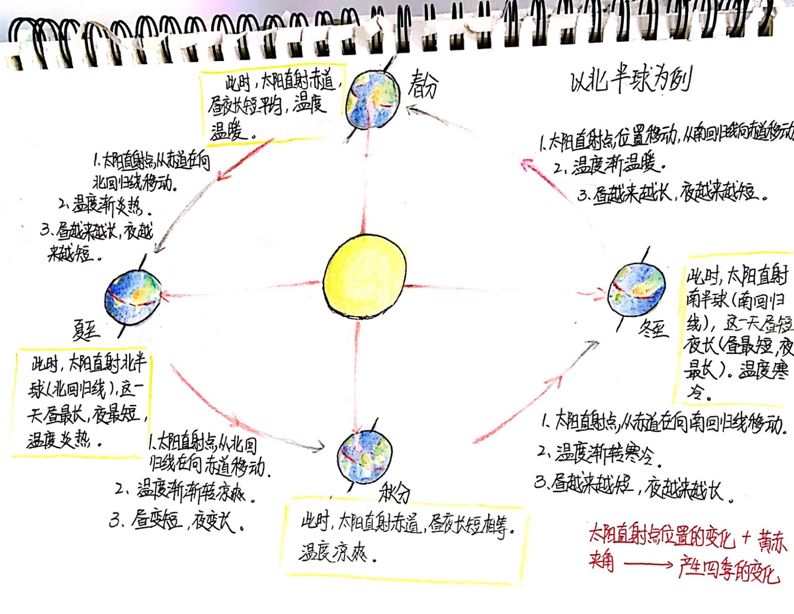 此时，太阳直射赤道，
昼夜长短平均，温度
温暖。
春分
以北半球为例
1.太阳直射点位置移动，从南回归线向赤道移动
2.温度渐温暖。
3.昼越来越长，夜越来越短。
1.太阳直射点，从赤道在向
北回归线移动。
2.温度渐炎热。
3.昼越来越长，夜越
来越短。
夏至
此时，太阳直射北半
球（北回归线），这一
天昼最长，夜最短，
温度炎热。
冬至
此时，太阳直射
南半球（南回归
线），这一天昼短
夜长（昼最短，夜
最长）。温度寒
冷。
1.太阳直射点，从北回
归线在向赤道移动.
2、温度渐渐转凉爽。
3、昼变短，夜变长。
秋分
此时，太阳直射赤道，昼夜长短相等。
温度凉爽。
1、太阳直射点，从赤道在向南回归线移动.
2、温度渐转寒冷。
3.昼越来越短，夜越来越长。
太阳直射点位置的变化 + 黄赤
夹角 → 产生四季的变化